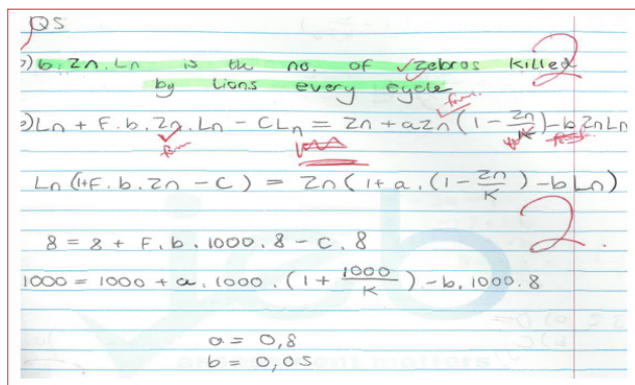 Q5
b. Zn. Ln is the no. of zebros killed 2
by Lions every cycle
Ln + F. b. Zn. Ln - CLn = Zn + aZn (1 - Zn/K) - b ZnLn
Ln (1+F. b. Zn - C) = Zn (1 + a. (1 - Zn/K) - bLn)
2.
8 = 8 + F. b. 1000. 8 - C. 8
1000 = 1000 + a. 1000. (1 + 1000/K) - b. 1000. 8
a = 0,8
b = 0,05